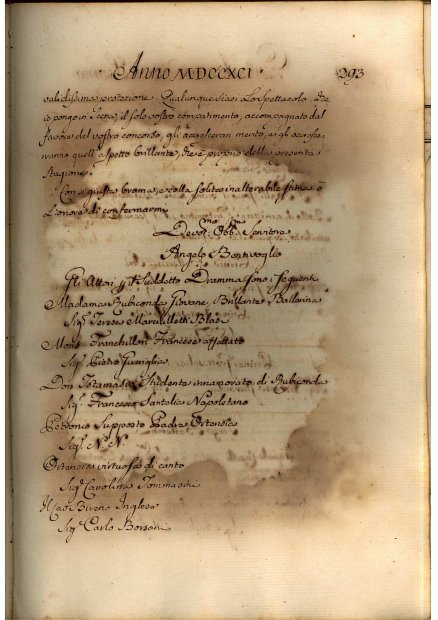 Anno MDCCXCI 293
validissima protezione. Qualunque siasi Lo Spettacolo, che
io pongo in Scena, il solo vostro compatimento, accompagnato dal
favore del vostro concorso, gli accresceran merito, e gli accresce-
ranno quell'aspetto brillante, che è proprio della presente
Stagione.
Con si giusta brama, e colla solita inalterabile stima è
L'onore di confermarmi
Devot.mo Obb.mo Servitore
Angelo Bentivoglio
Gli Attori Suddetto Dramma sono i seguenti
Madama Rubiconda Giovane, Brillante Ballarina
Sig.ra Teresa Blasi
Mons. Franchillon Francese affettato
Sig. Pietro Guariglia
Don Studente innamorato di Rubiconda
Sig. Francesco Santelia Napoletano
Petronio Supposto Padre Ortensia
Sig. N. N.
virtuosa di canto
Sig.ra Carolina Tommasini
Inglese
Sig. Carlo Borsani